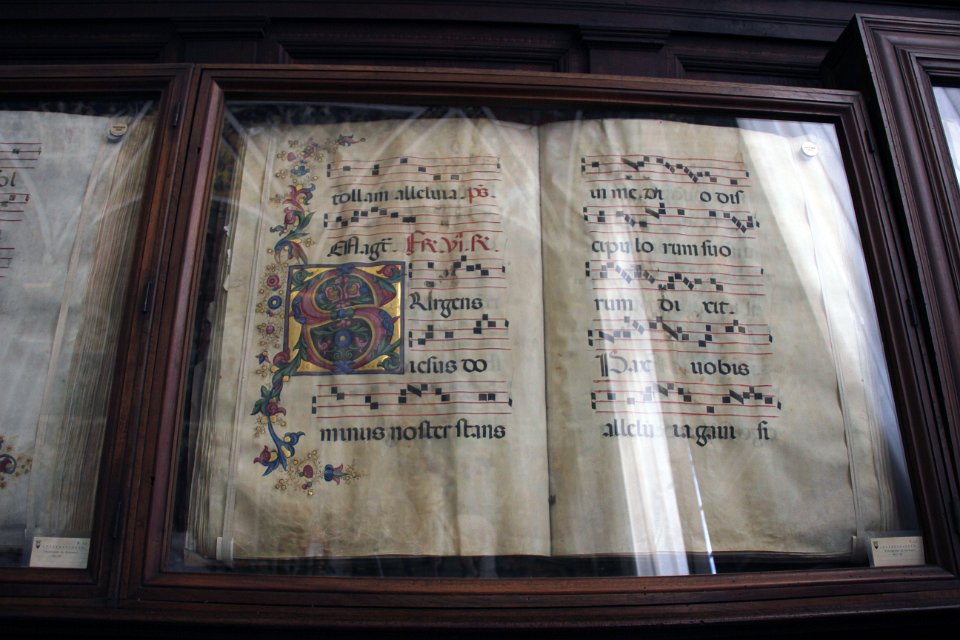 tollam alleluia.
SUrgens
iesus do
minus noster stans
in me di o dis
cipulo rum suo
rum di xit.
Pax uobis
allelu ia gaui si